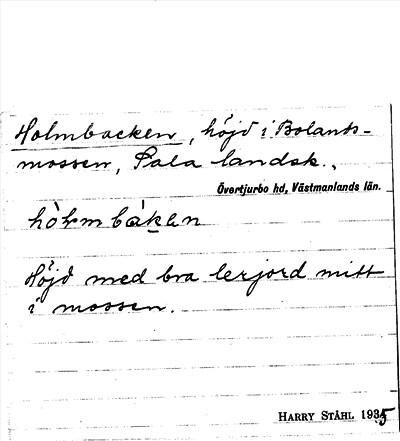 Holmbacken, höjd i Bolants-
mossen, Sala landsk.,
Övertjurbo hd, Västmanlands län.
hòlmbàkɛn
Höjd med bra lerjord mitt
i mossen.
HARRY STÅHL 1935